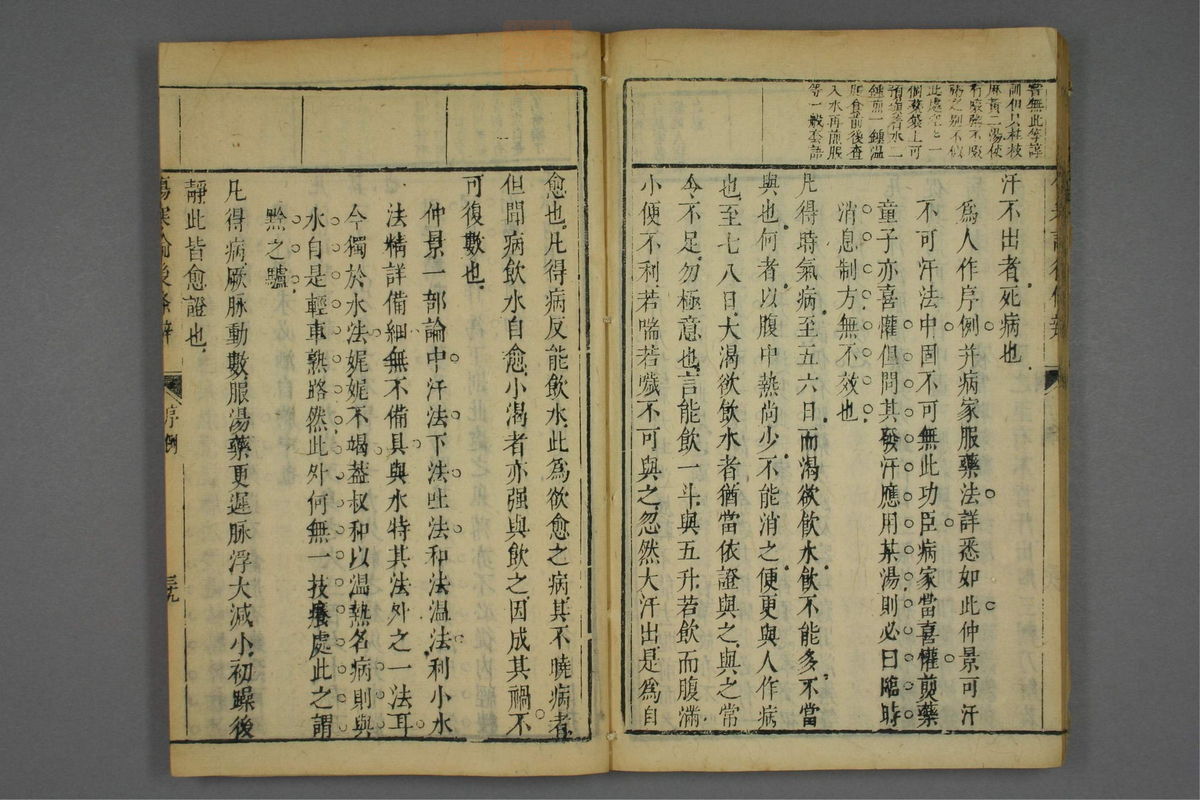 訓但只桂枝
麻黃二湯使
個發藥上可
預頒著水二
鍾煎一鍾温
服食前後査
入水再煎服
等一般套語
汗不出者死病也
爲人作序例并病家服藥法詳悉如此仲景可汗
不可汗法中固不可無此功臣病家當喜懽煎藥
童子亦喜懽但問其發汗應用某湯則必曰臨時
消息制方無不效也
凡得時氣病至五六日而渴欲飮水飮不能多不當
與也何者以腹中熱尚少不能消之便更與人作病
也至七八日大渴欲飮水者猶當依證與之與之常
令不足勿極意也言能飮一斗與五升若飮而腹滿
小便不利若喘若噦不可與之忽然大汗出是爲自
愈也凡得病反能飮水此爲欲愈之病其不曉病者
但聞病飮水自愈小渴者亦强與飮之因成其禍不
可復數也
仲景一部論中汗法下法吐法和法温法利小水
法精詳備細無不備具與水特其法外之一法耳
今獨於水法娓娓不竭蓋叔和以温熱名病則與
水自是輕車熟路然此外何無一技癢處此之謂
黔之驢
凡得病厥脉動數服湯藥更遲脉浮大減小初躁後
靜此皆愈證也
傷寒論後條辨
序例
三九